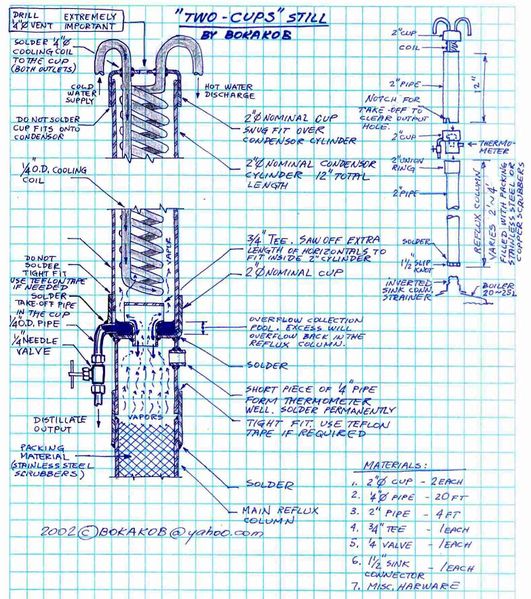 "TWO-CUPS" STILL
BY BOKAKOB
DRILL
¼"Ø VENT
EXTREMELY
IMPORTANT
SOLDER ¼"Ø
COOLING COIL
TO THE CUP
(BOTH OUTLETS)
COLD
WATER
SUPPLY
HOT WATER
DISCHARGE
DO NOT SOLDER
CUP FITS ONTO
CONDENSOR
2"Ø NOMINAL CUP
SNUG FIT OVER
CONDENSOR CYLINDER
¼ O.D. COOLING
COIL
2"Ø NOMINAL CONDENSOR
CYLINDER 12" TOTAL
LENGTH
VAPOR
¾" TEE. SAW OFF EXTRA
LENGTH OF HORIZONTALS TO
FIT INSIDE 2" CYLINDER
DO NOT
SOLDER
TIGHT FIT
USE TEFLON TAPE
IF NEEDED
2"Ø NOMINAL CUP
SOLDER
TAKE-OFF PIPE
IN THE CUP
¼" O.D. PIPE
¼" NEEDLE
VALVE
OVERFLOW COLLECTION
POOL. EXCESS WILL
OVERFLOW BACK IN THE
REFLUX COLUMN.
SOLDER
SHORT PIECE OF ¼" PIPE
FORM THERMOMETER
WELL. SOLDER PERMANENTLY
TIGHT FIT. USE TEFLON
TAPE IF REQUIRED
VAPORS
DISTILLATE
OUTPUT
PACKING
MATERIAL
(STAINLESS STEEL
SCRUBBERS)
SOLDER
MAIN REFLUX
COLUMN
2002 © BOKAKOB@yahoo.com
2" CUP
COIL
2" PIPE
12"
NOTCH FOR
TAKE-OFF TO
CLEAR OUTPUT
HOLE.
2" CUP
THERMO-
METER
2" UNION
RING
2" PIPE
REFLUX COLUMN
VARIES 2'~4'
FILLED WITH PACKING
STAINLESS STEEL OR
COPPER SCRUBBERS
SOLDER
1½" SLIP
KNOT
INVERTED
SINK CONN.
STRAINER
BOILER
20~25L
MATERIALS:
1. 2"Ø CUP - 2 EACH
2. ¼"Ø PIPE - 20 FT
3. 2" PIPE - 4 FT
4. ¾" TEE - 1 EACH
5. ¼ VALVE - 1 EACH
6. 1½" SINK
CONNECTOR - 1 EACH
7. MISC, HARWARE